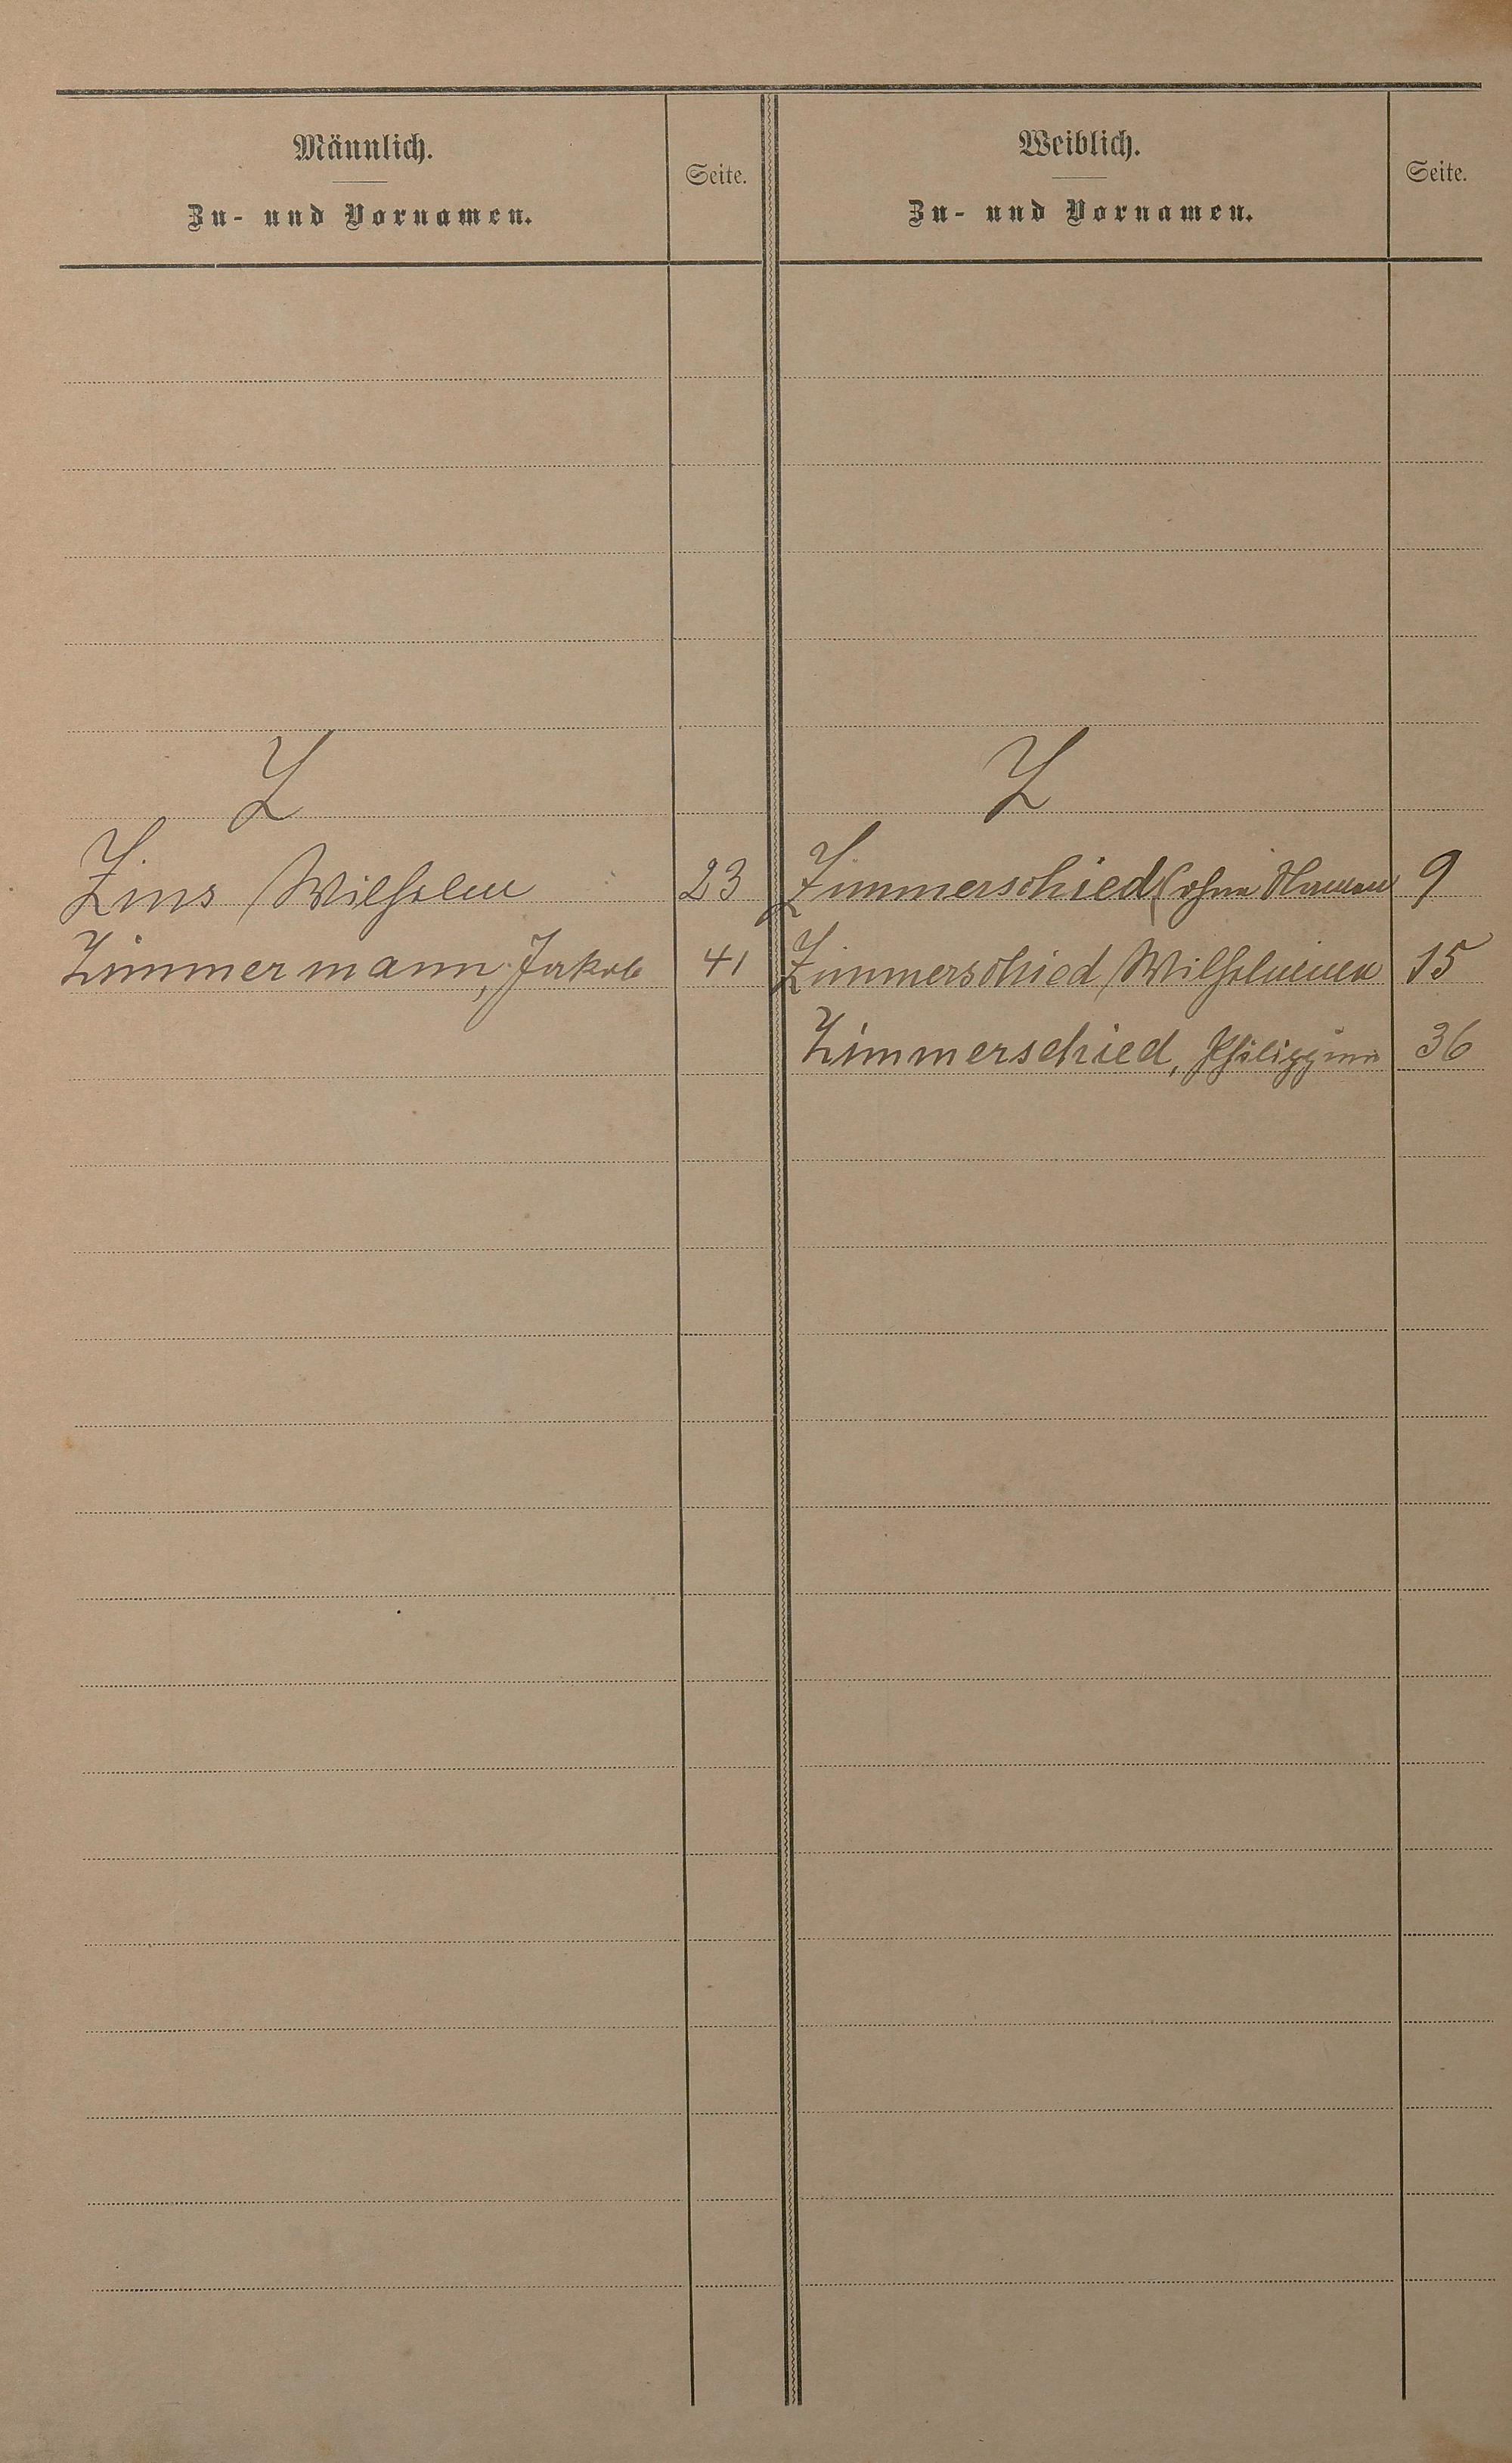 Männlich.
Zu- und Vornamen.
Seite.
Weiblich.
Zu- und Vornamen.
Seite.
Z
Z
Zins Wilhelm 23
Zimmerschied (ohne Namen 9
Zimmermann, Jakob 41
Zimmerschied Wilhelmina 15
Zimmerschied, Philippina 36